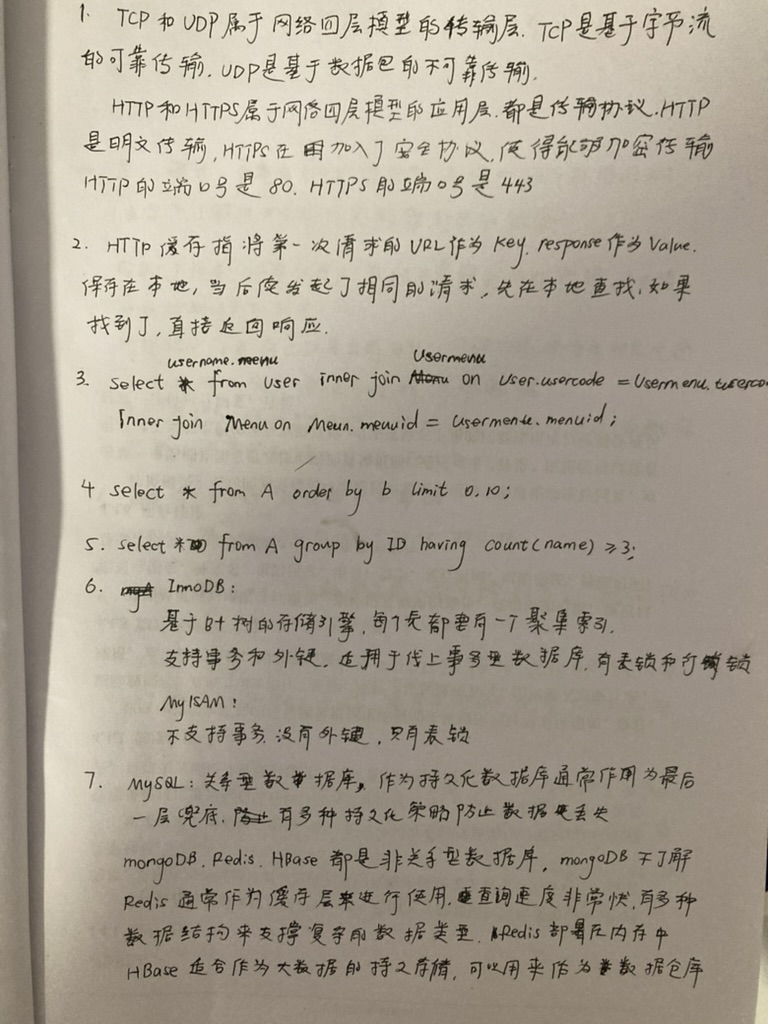 1. TCP和UDP属于网络四层模型的传输层. TCP是基于字节流
的可靠传输. UDP是基于数据包的不可靠传输.
HTTP和HTTPS属于网络四层模型的应用层. 都是传输协议. HTTP
是明文传输, HTTPS在加入了安全协议, 使得能够加密传输
HTTP的端口号是80. HTTPS的端口号是443
2. HTTP缓存指将第一次请求的URL作为Key, response作为Value.
保存在本地, 当后度发起了相同的请求, 先在本地查找, 如果
找到了, 直接返回响应.
username.menu Usermenu
3. select from User inner join on User.usercode = Usermenu.
Inner join Menu on Meun.menuid = Usermenu.menuid;
4 select * from A order by b limit 0.10;
5. select * from A group by ID having count(name) ≥3;
6. InnoDB:
基于B+树的存储引擎, 每个表都要有一个聚集索引.
支持事务和外键. 适用于线上事务型数据库. 有表锁和行锁
MyISAM:
不支持事务. 没有外键, 只有表锁
7. MySQL: 关系型数据库, 作为持久化数据库通常作用为最后
一层兜底. 有多种持久化策略防止数据丢失
mongoDB. Redis. HBase 都是非关系型数据库, mongoDB不了解
Redis 通常作为缓存层来进行使用, 查询速度非常快, 有多种
数据结构来支撑复杂的数据类型. Redis部署在内存中
HBase 适合作为大数据的持久存储, 可以用来作为数据仓库